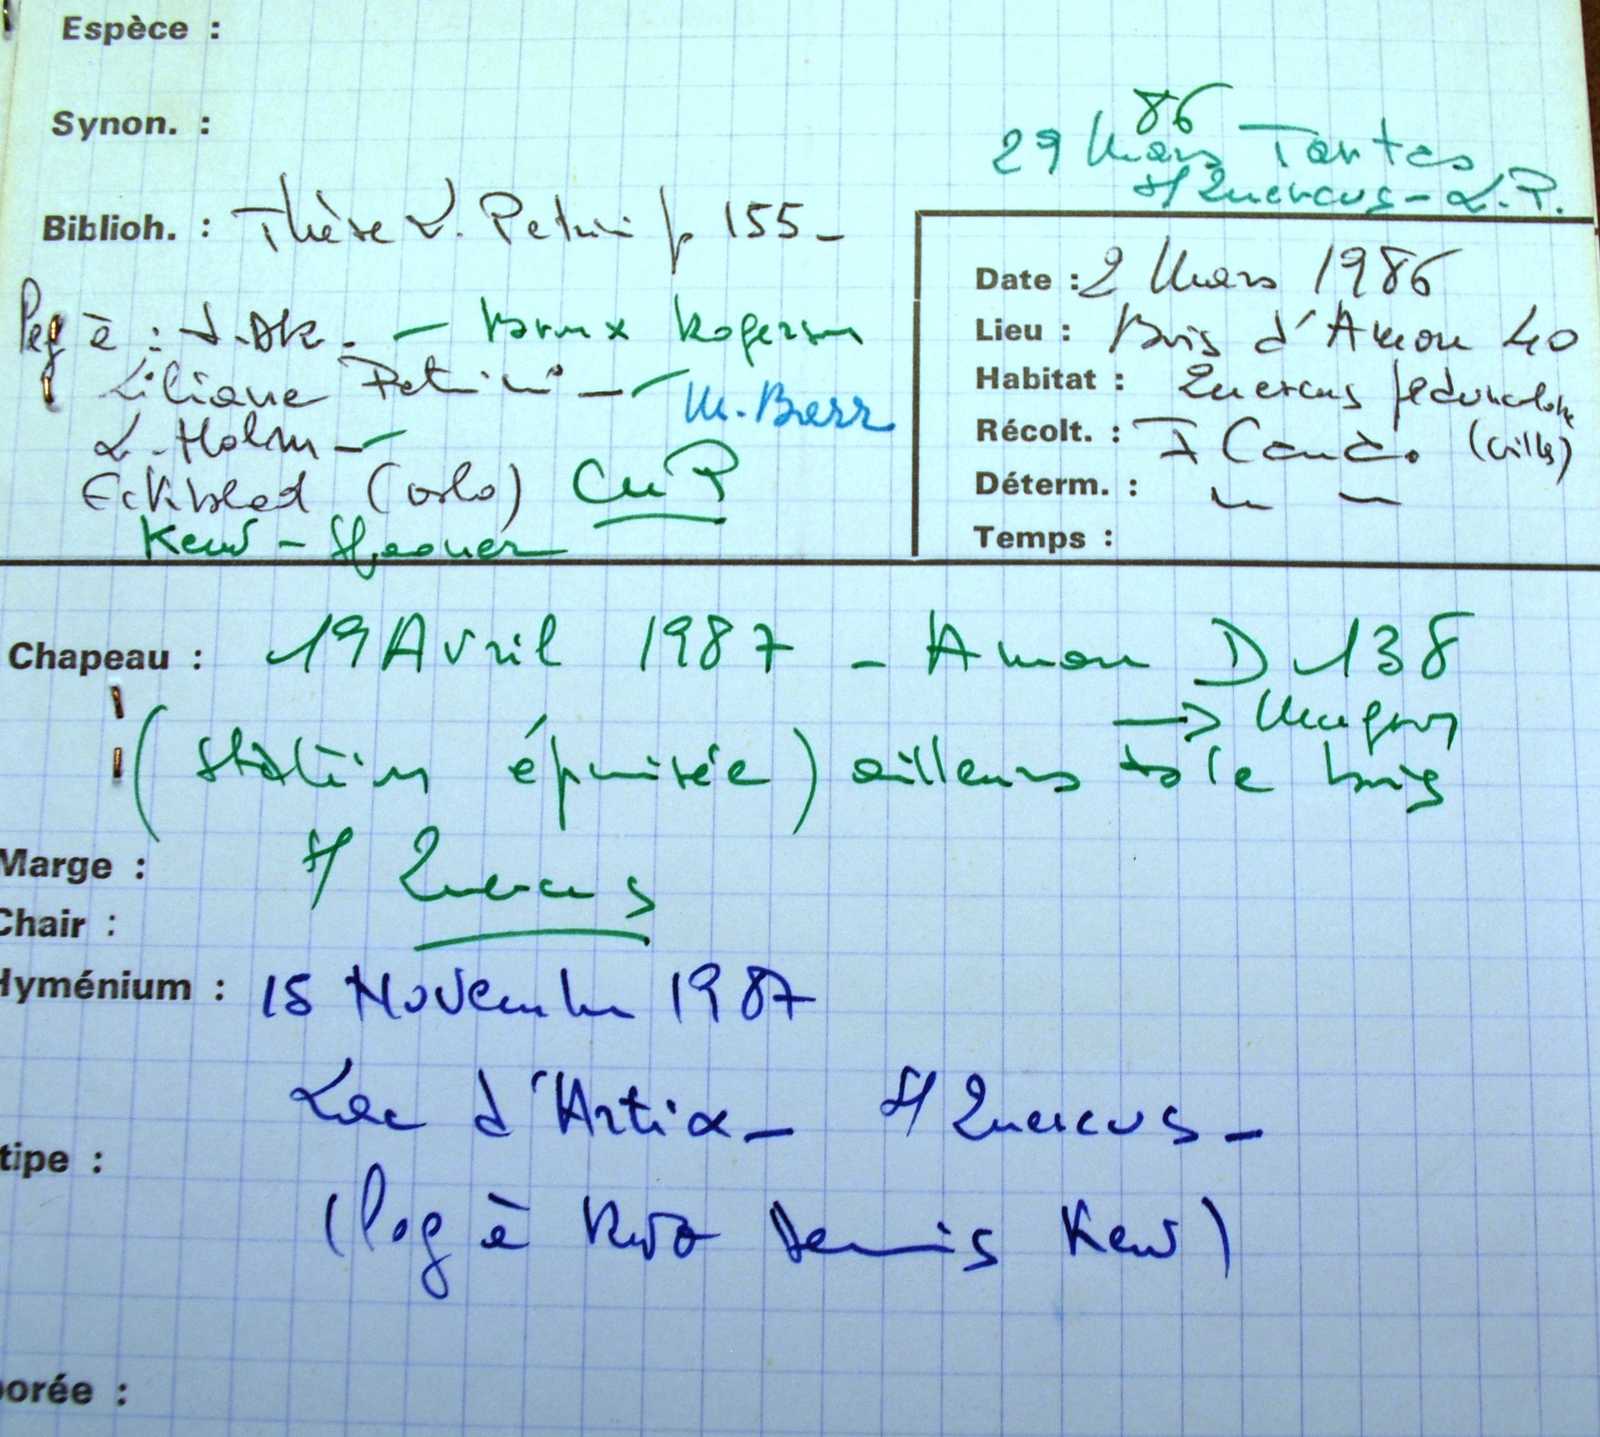 Espèce :
Synon. :
86
29 Mars Tartas
s/ Quercus - L.P.
Biblioh. : Thèse L. Petrini p 155 -
Date : 2 Mars 1986
Lieu : Bois d'Amou 40
Habitat : Quercus pedunculata
Récolt. : F Candò. (Gilb)
Déterm. :
Temps :
Peg à : - Bronx Rogerson
Liliane Petrini - M. Barr
L. Holm -
Eckblad (oslo) CUP
Kew - Spooner
Chapeau : 19 Avril 1987 - Amou D 138
→ Mugron
(Station épuisée) ailleurs ds le bois
Marge : s/ Quercus
Chair :
Hyménium : 15 Novembre 1987
Lac d'Artix - s/ Quercus -
tipe :
(Peg à RWG Dennis Kew)
porée :